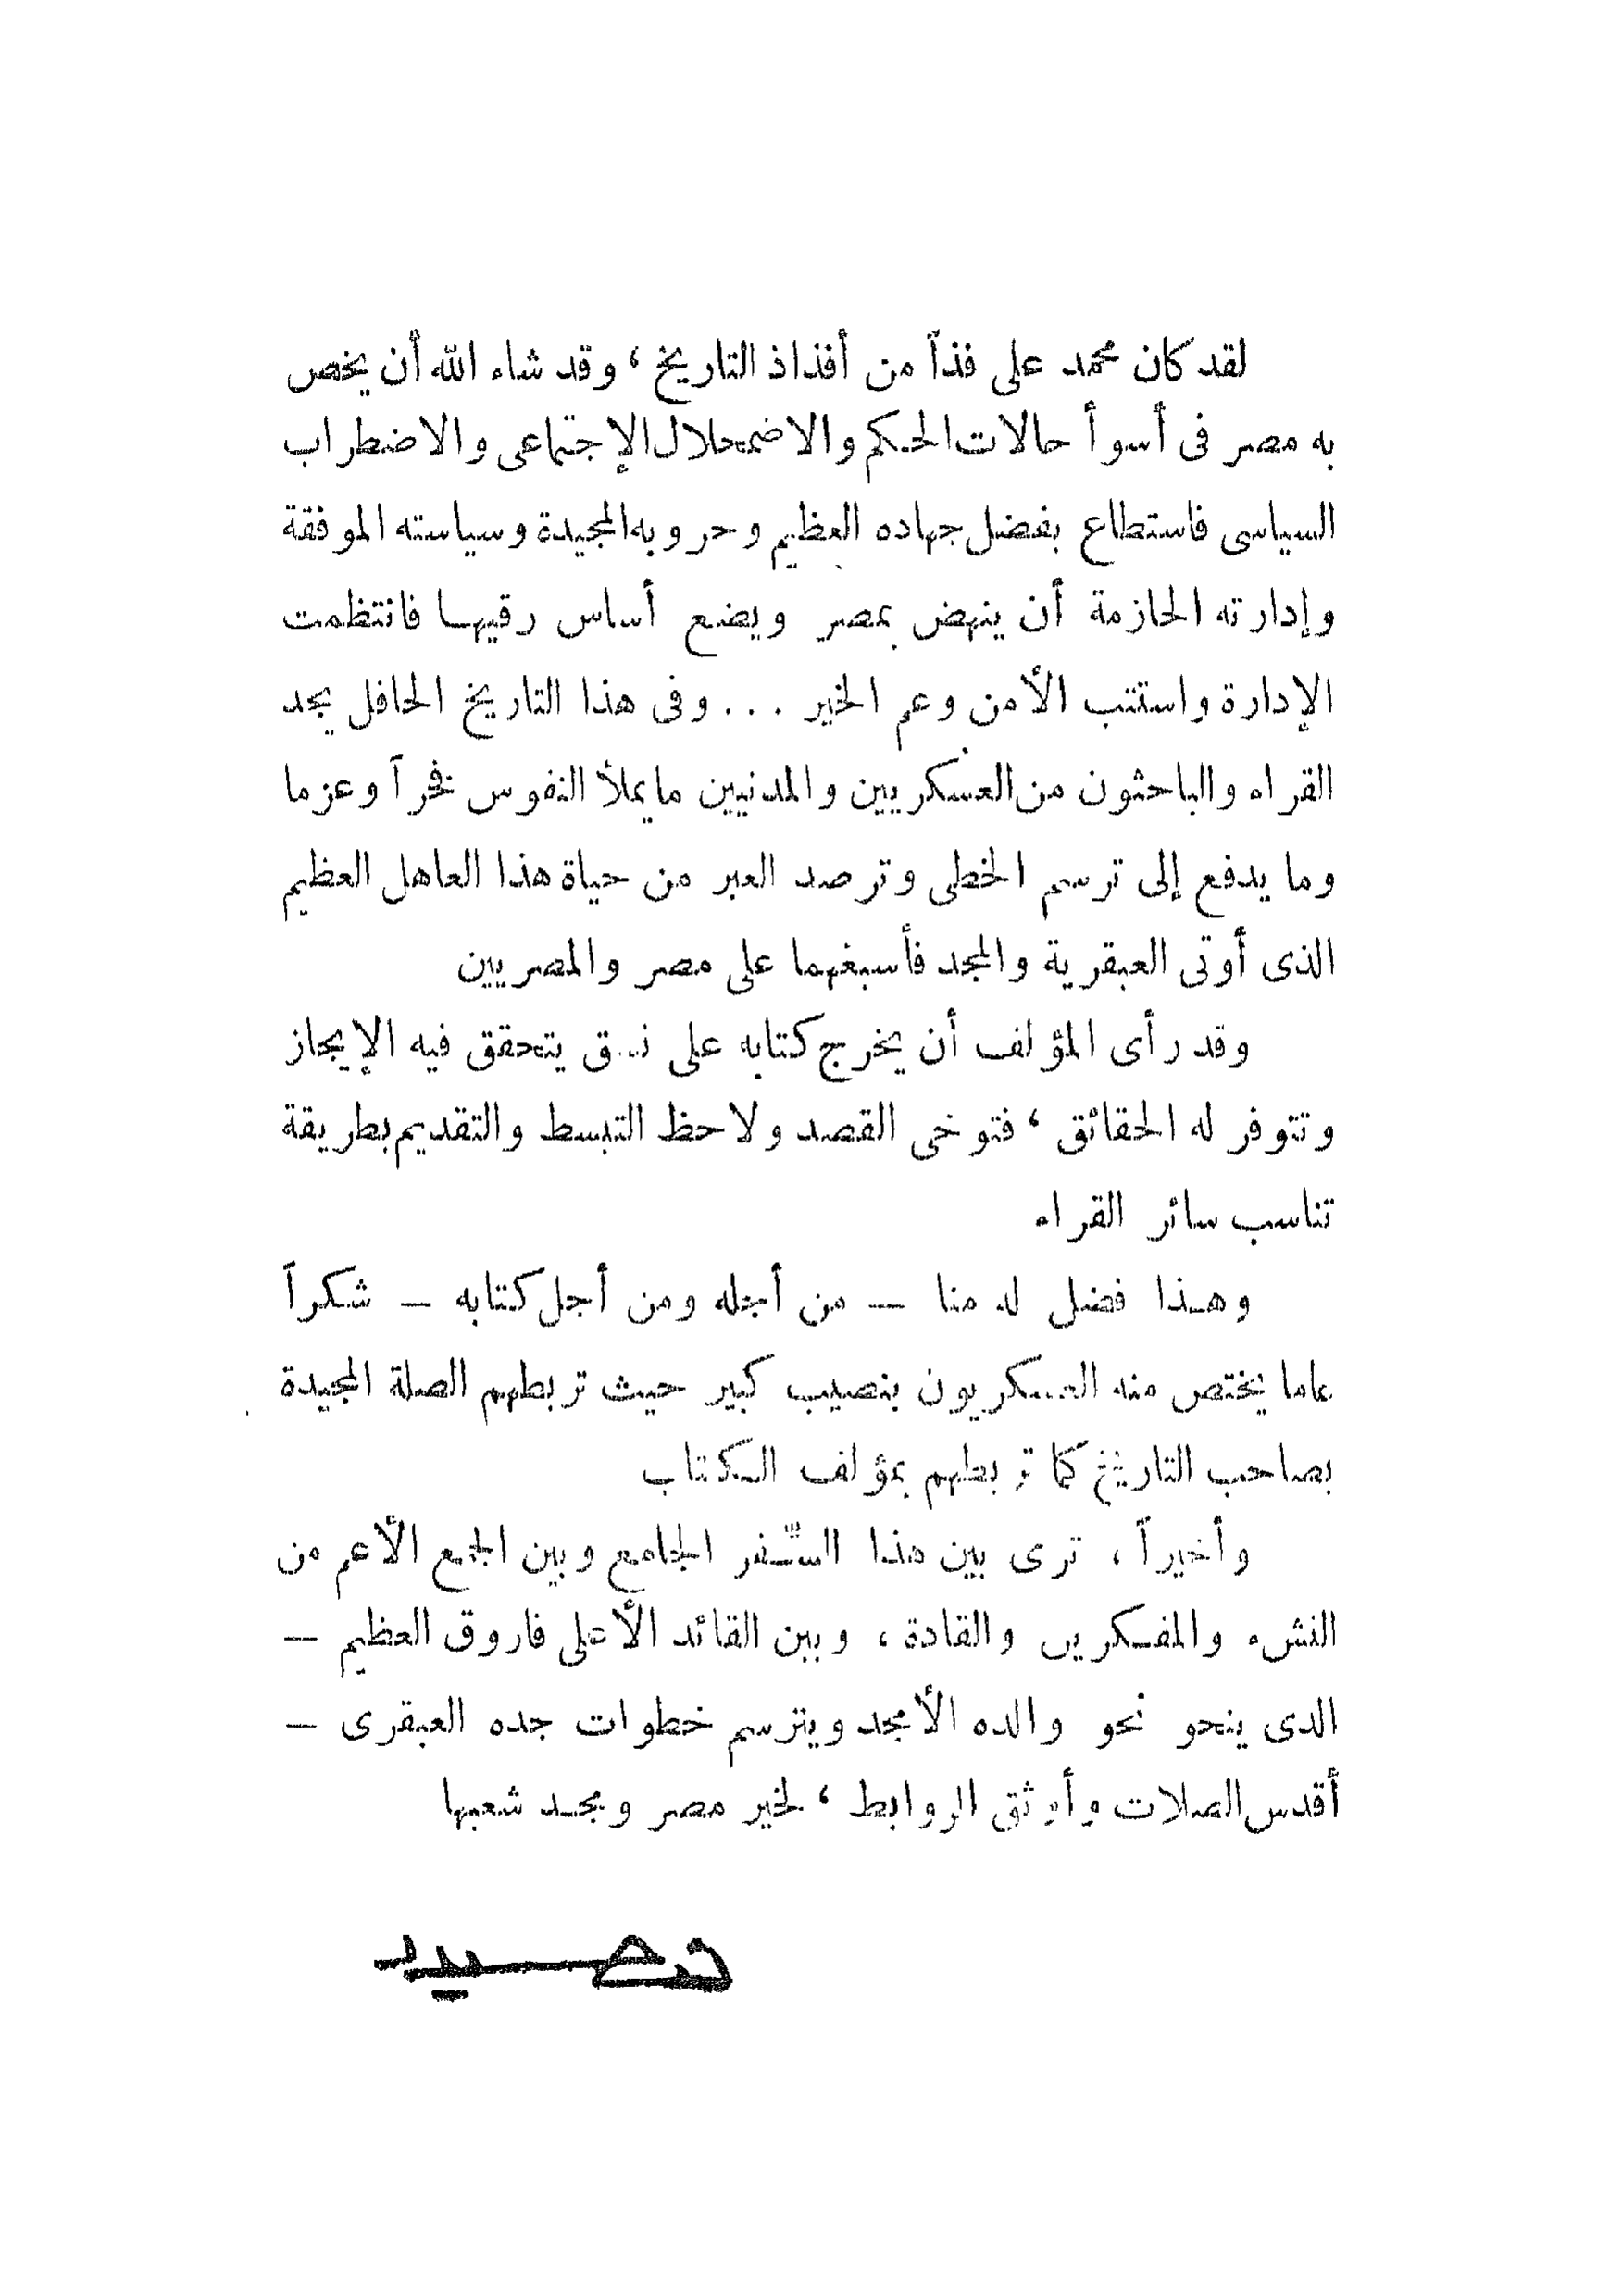 لقد كان محمد على فذاً من أفذاذ التاريخ ، وقد شاء الله أن يخص
به مصر فى أسوأ حالات الحكم والاضمحلال الإجتماعى والاضطراب
السياسى فاستطاع بفضل جهاده العظيم وحروبه المجيدة وسياسته الموفقة
وإدارته الحازمة أن ينهض بمصر ويضع أساس رقيها فانتظمت
الإدارة واستتب الأمن وعم الخير ... وفى هذا التاريخ الحافل يجد
القراء والباحثون من العسكريين والمدنيين مايملأ النفوس فخراً وعزما
وما يدفع إلى ترسم الخطى وترصد العبر من حياة هذا العاهل العظيم
الذى أوتى العبقرية والمجد فأسبغهما على مصر والمصريين
وقد رأى المؤلف أن يخرج كتابه على نسق يتحقق فيه الإيجاز
وتتوفر له الحقائق ، فتوخى القصد ولاحظ التبسط والتقديم بطريقة
تناسب سائر القراء
وهذا فضل له منا – من أجله ومن أجل كتابه – شكراً
عاما يختص منه العسكريون بنصيب كبير حيث تربطهم الصلة المجيدة
بصاحب التاريخ كما تربطهم بمؤلف الكتاب
وأخيراً ، ترى بين هذا السِّفر الجامع وبين الجمع الأعم من
النشء والمفكرين والقادة ، وبين القائد الأعلى فاروق العظيم –
الذى ينحو نحو والده الأمجد ويترسم خطوات جده العبقرى –
أقدس الصلات وأوثق الروابط ، لخير مصر ومجد شعبها